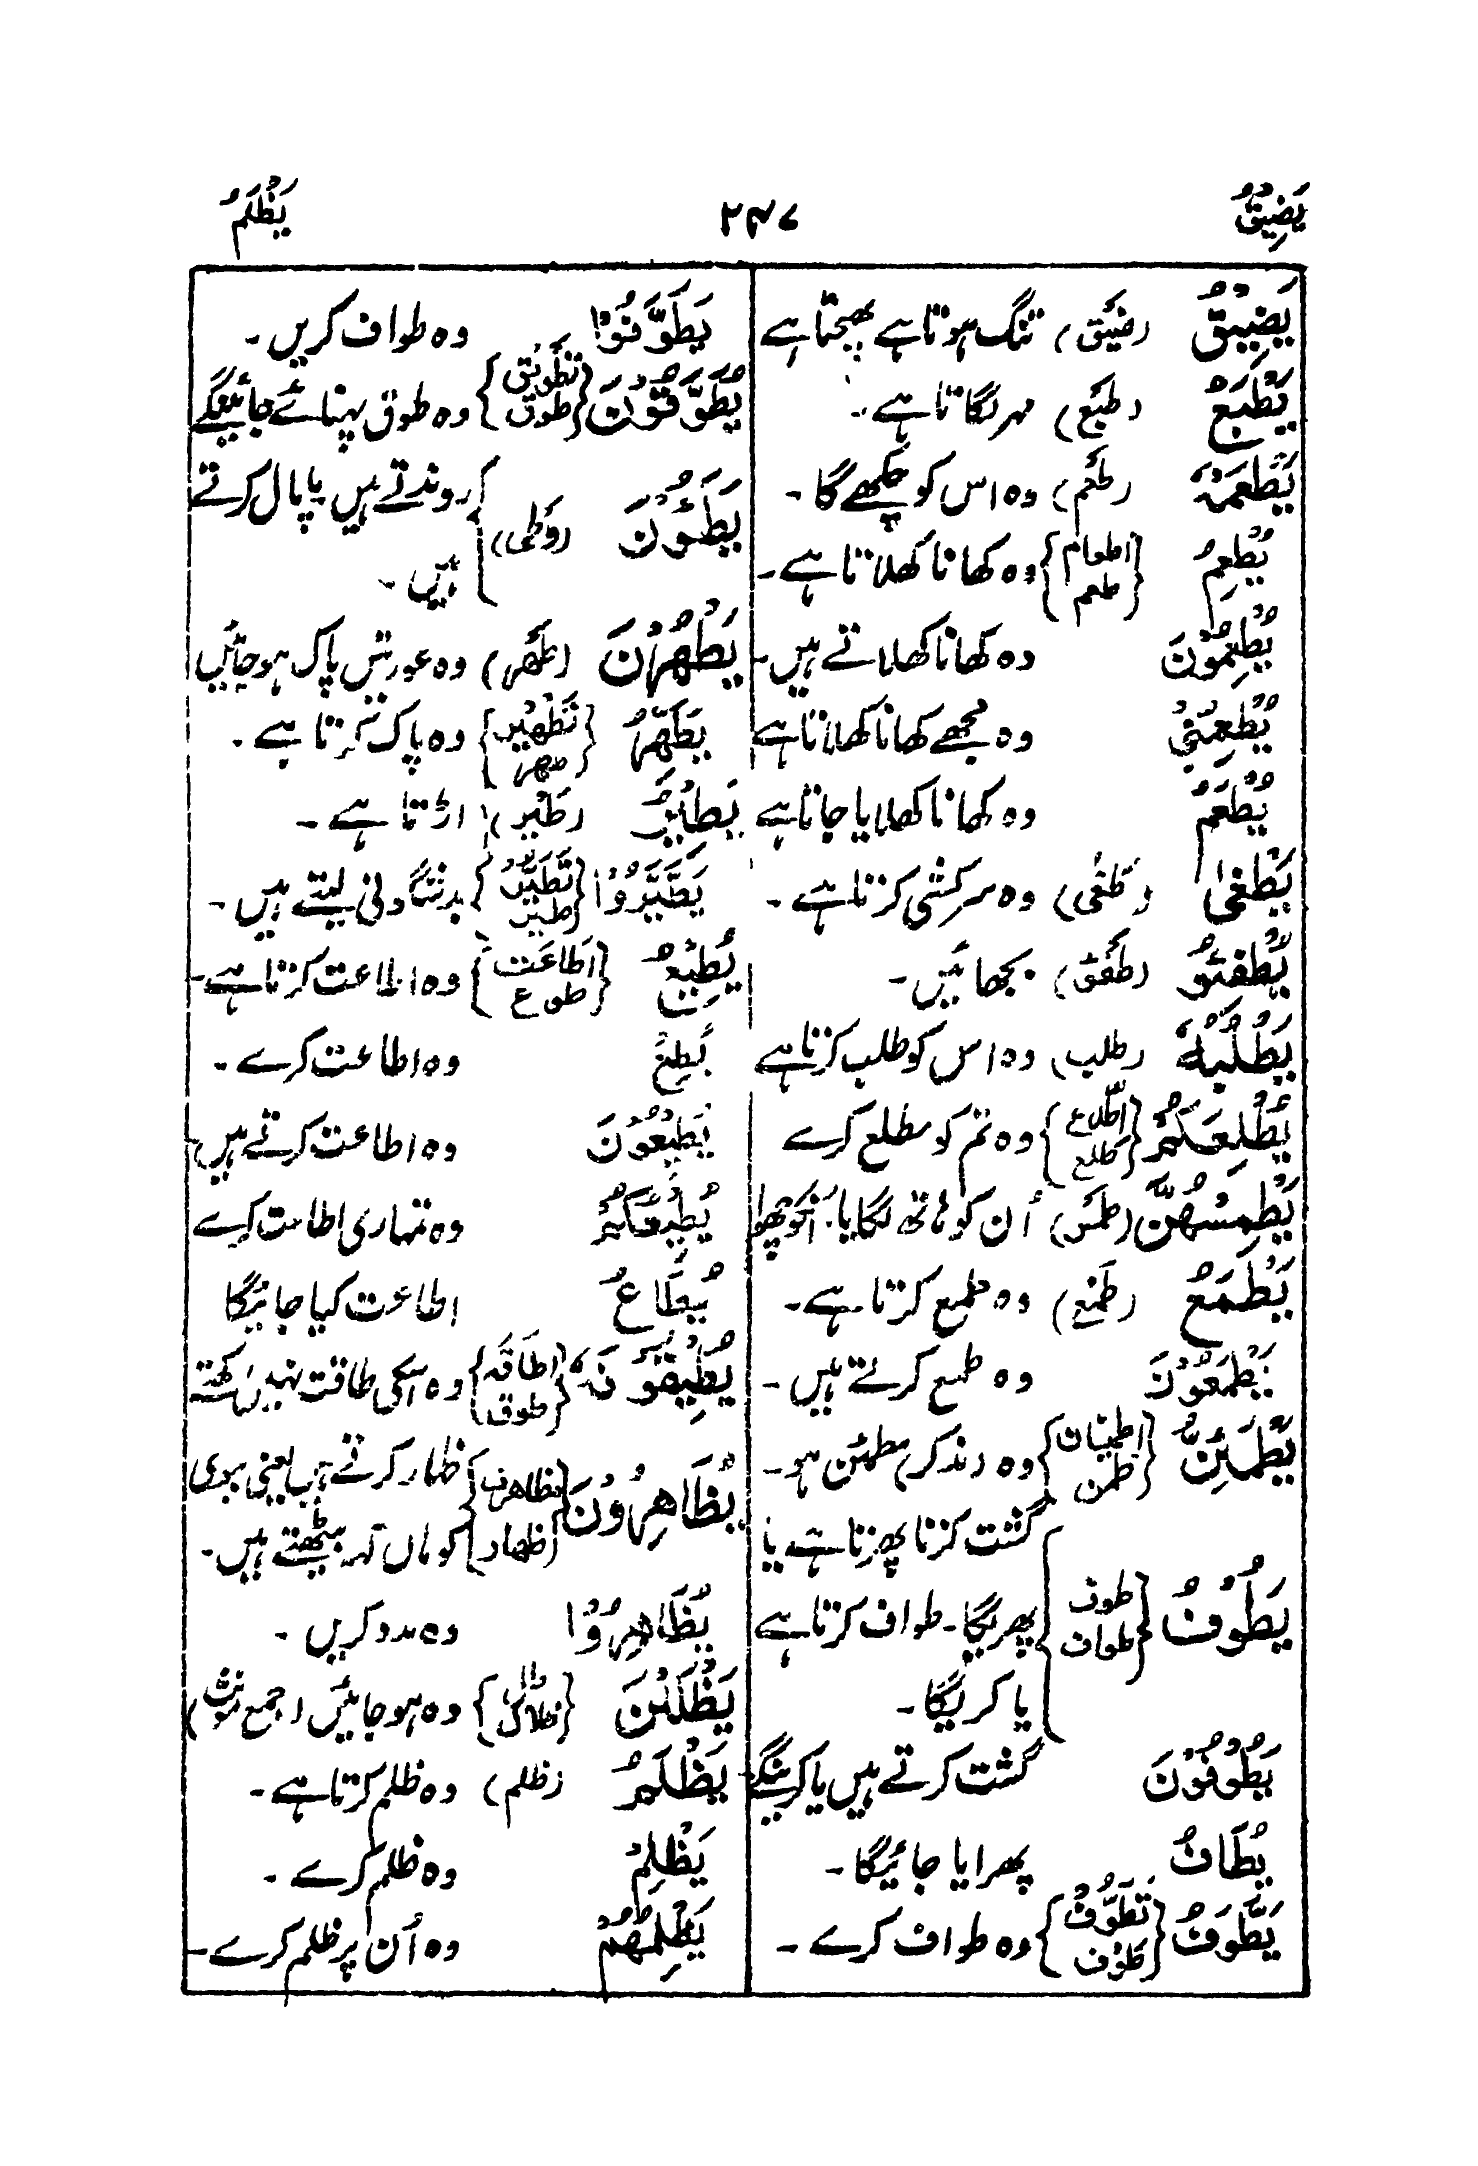 يَضِيْقُ ۲۴۷ يَظْلِمُ
يَضِيْقُ (ضَيْق) تنگ ہوتا ہے بھچتا ہے
يَطْبَعُ (طَبْع) مہر لگاتا ہے۔
يَطْعَمْهُ (طَعْم) وہ اس کو چکھے گا۔
يُطْعِمُ {اطعام طعم} وہ کھانا کھلاتا ہے۔
يُطْعِمُوْنَ وہ کھانا کھلاتے ہیں۔
يُطْعِمُنِيْ وہ مجھے کھانا کھلاتا ہے
يُطْعَمُ وہ کھانا کھلایا جاتا ہے
يَطْغٰى (طَغٰى) وہ سرکشی کرتا ہے۔
يُطْفِئُوْ (طَفْئ) بجھائیں۔
يَطْلُبُهٗ (طلب) وہ اس کو طلب کرتا ہے
يُطْلِعَكُمْ {اطّلاع طلع} وہ تم کو مطلع کرے
يَطْمِسْهُنَّ (طمس) اُن کو ہاتھ لگایا۔ انکو چھوا
يَطْمَعُ (طَمْع) وہ طمع کرتا ہے۔
يَطْمَعُوْنَ وہ طمع کرتے ہیں۔
يَطْمَئِنُّ {اطمینان طمن} وہ (مذکر) مطمئن ہو۔
يَطُوْفُ {طوف طواف} گشت کرتا پھرتا ہے یا
پھریگا۔ طواف کرتا ہے
یا کریگا۔
يَطُوْفُوْنَ گشت کرتے ہیں یا کرینگے۔
يُطَافُ پھرایا جائیگا۔
يَطَّوَّفَ {تَطَوُّف طَوْف} وہ طواف کرے۔
يَطَّوَّفُوْا وہ طواف کریں۔
يُطَوَّقُوْنَ {تَطْوِيْق طوق} وہ طوق پہنائے جائینگے
يَطَئُوْنَ (وَطْى) روندتے ہیں پامال کرتے
ہیں۔
يَطْهُرْنَ (طَهْر) وہ عورتیں پاک ہو جائیں
يُطَهِّرُ {تَطْهِيْر طهر} وہ پاک کرتا ہے۔
يَطِيْرُ (طَيْر) اڑتا ہے۔
يَطَّيَّرُوْا {تَطَيُّر طير} بدشگونی لیتے ہیں۔
يُطِيْعُ {اطاعت طوع} وہ اطاعت کرتا ہے۔
يُطِعْ وہ اطاعت کرے۔
يُطِيْعُوْنَ وہ اطاعت کرتے ہیں۔
يُطِيْعُكُمْ وہ تمہاری اطاعت کرے
يُطَاعُ اطاعت کیا جائیگا
يُطِيْقُوْنَهٗ {اطاقه طوق} وہ اسکی طاقت نہیں رکھتے
يُظَاهِرُوْنَ {اظهار} ظہار کرتے ہیں یعنی بیوی
کو ماں کہہ بیٹھتے ہیں۔
يُظَاهِرُوْا وہ مدد کریں۔
يَظْلَلْنَ {ظلال} وہ ہو جائیں (جمع مونث)
يَظْلِمُ (ظلم) وہ ظلم کرتا ہے۔
يَظْلِمْ وہ ظلم کرے۔
يَظْلِمَهُمْ وہ اُن پر ظلم کرے۔